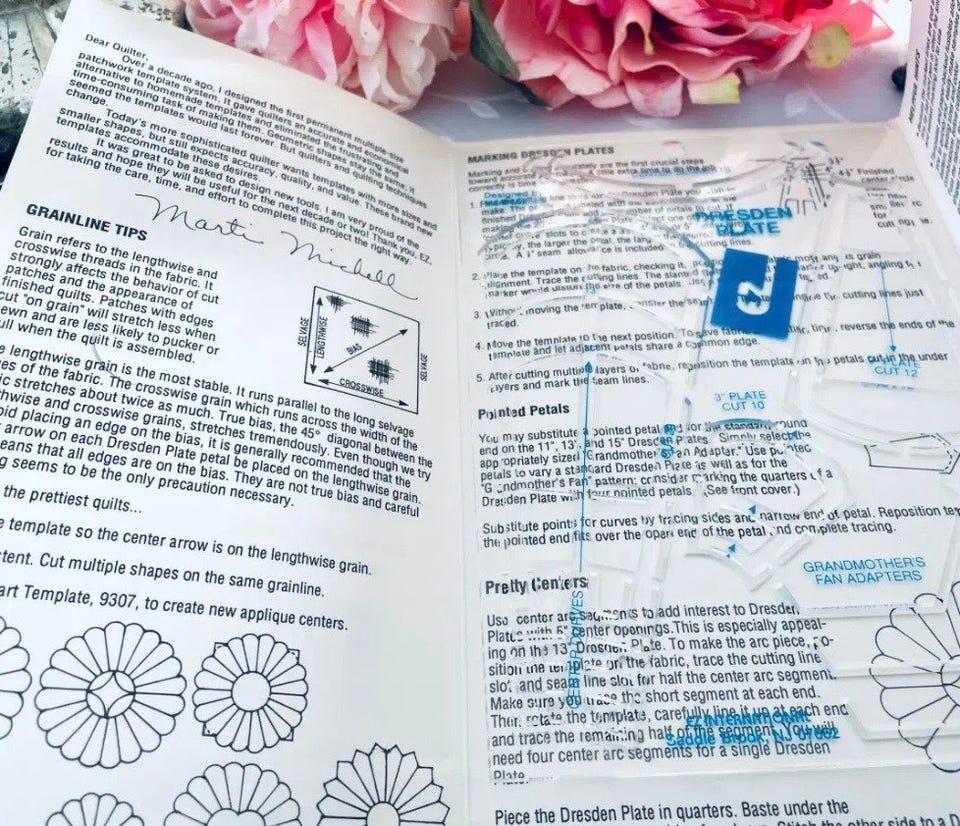 Dear Quilter,
Over a decade ago, I designed the first permanent multiple size
patchwork template system. It gave quilters an accurate and economical
alternative to homemade templates and eliminated the frustrating and
time-consuming task of making them. Geometric shapes stay the same; it
seemed the templates would last forever. But quilters and quilting techniques
change.
Today's more sophisticated quilter wants templates with more sizes and
smaller shapes, but still expects accuracy, quality, and value. These brand new
templates accommodate these desires.
It was great to be asked to design new tools. I am very proud of the
results and hope they will be useful for the next decade or two! Thank you, EZ,
for taking the care, time, and effort to complete this project the right way.
Marti Michell
GRAINLINE TIPS
Grain refers to the lengthwise and
crosswise threads in the fabric. It
strongly affects the behavior of cut
patches and the appearance of
finished quilts. Patches with edges
cut "on grain" will stretch less when
ewn and are less likely to pucker or
ull when the quilt is assembled.
SELVAGE
LENGTHWISE
BIAS
CROSSWISE
SELVAGE
e lengthwise grain is the most stable. It runs parallel to the long selvage
es of the fabric. The crosswise grain which runs across the width of the
ic stretches about twice as much. True bias, the 45° diagonal between the
thwise and crosswise grains, stretches tremendously. Even though we try
oid placing an edge on the bias, it is generally recommended that the
arrow on each Dresden Plate petal be placed on the lengthwise grain.
eans that all edges are on the bias. They are not true bias and careful
g seems to be the only precaution necessary.
the prettiest quilts...
e template so the center arrow is on the lengthwise grain.
tent. Cut multiple shapes on the same grainline.
art Template, 9307, to create new applique centers.
MARKING DRESDEN PLATES
Marking and are the first crucial steps
toward accurate the extra time to do the
correctly is time
1. Dresden Plate you
4½" Finished
DRESDEN
PLATE
the larger the petal, the cutting lines.
A ¼" seam allowance is included.
2. Place the template on the fabric, checking
alignment. Trace the cutting lines. The slanted
marker would distort the size of the petals.
3. Without moving the template, transfer the the cutting lines just
traced.
4. Move the template to the next position. To save fabric, reverse the ends of the
template and let adjacent petals share a common edge.
5. After cutting multiple layers of fabric, reposition the template on the petals cut in the under
layers and mark the seam lines.
PLATE
CUT 12
3" PLATE
CUT 10
Pointed Petals
You may substitute a pointed petal end for the standard round
end on the 11", 13", and 15" Dresden Plates. Simply select the
appropriately sized "Grandmother's Fan Adapter." Use pointed
petals to vary a standard Dresden Plate as well as for the
"Grandmother's Fan" pattern; consider marking the quarters of a
Dresden Plate with four pointed petals. (See front cover.)
Substitute points for curves by tracing sides and narrow end of petal. Reposition
the pointed end fits over the open end of the petal and complete tracing.
GRANDMOTHER'S
FAN ADAPTERS
Pretty Centers
Use center arc segments to add interest to Dresden
Plates with 5" center openings. This is especially appeal-
ing on the 13" Dresden Plate. To make the arc piece, po-
sition the template on the fabric, trace the cutting line
slot, and seam line slot for half the center arc segment.
Make sure you trace the short segment at each end.
Then rotate the template, carefully line it up at each end
and trace the remaining half of the segment. You will
need four center arc segments for a single Dresden
Plate.
CENTER CURVES
EZ INTERNATIONAL
Saddle Brook, NJ 07662
Piece the Dresden Plate in quarters. Baste under the
other side to a D